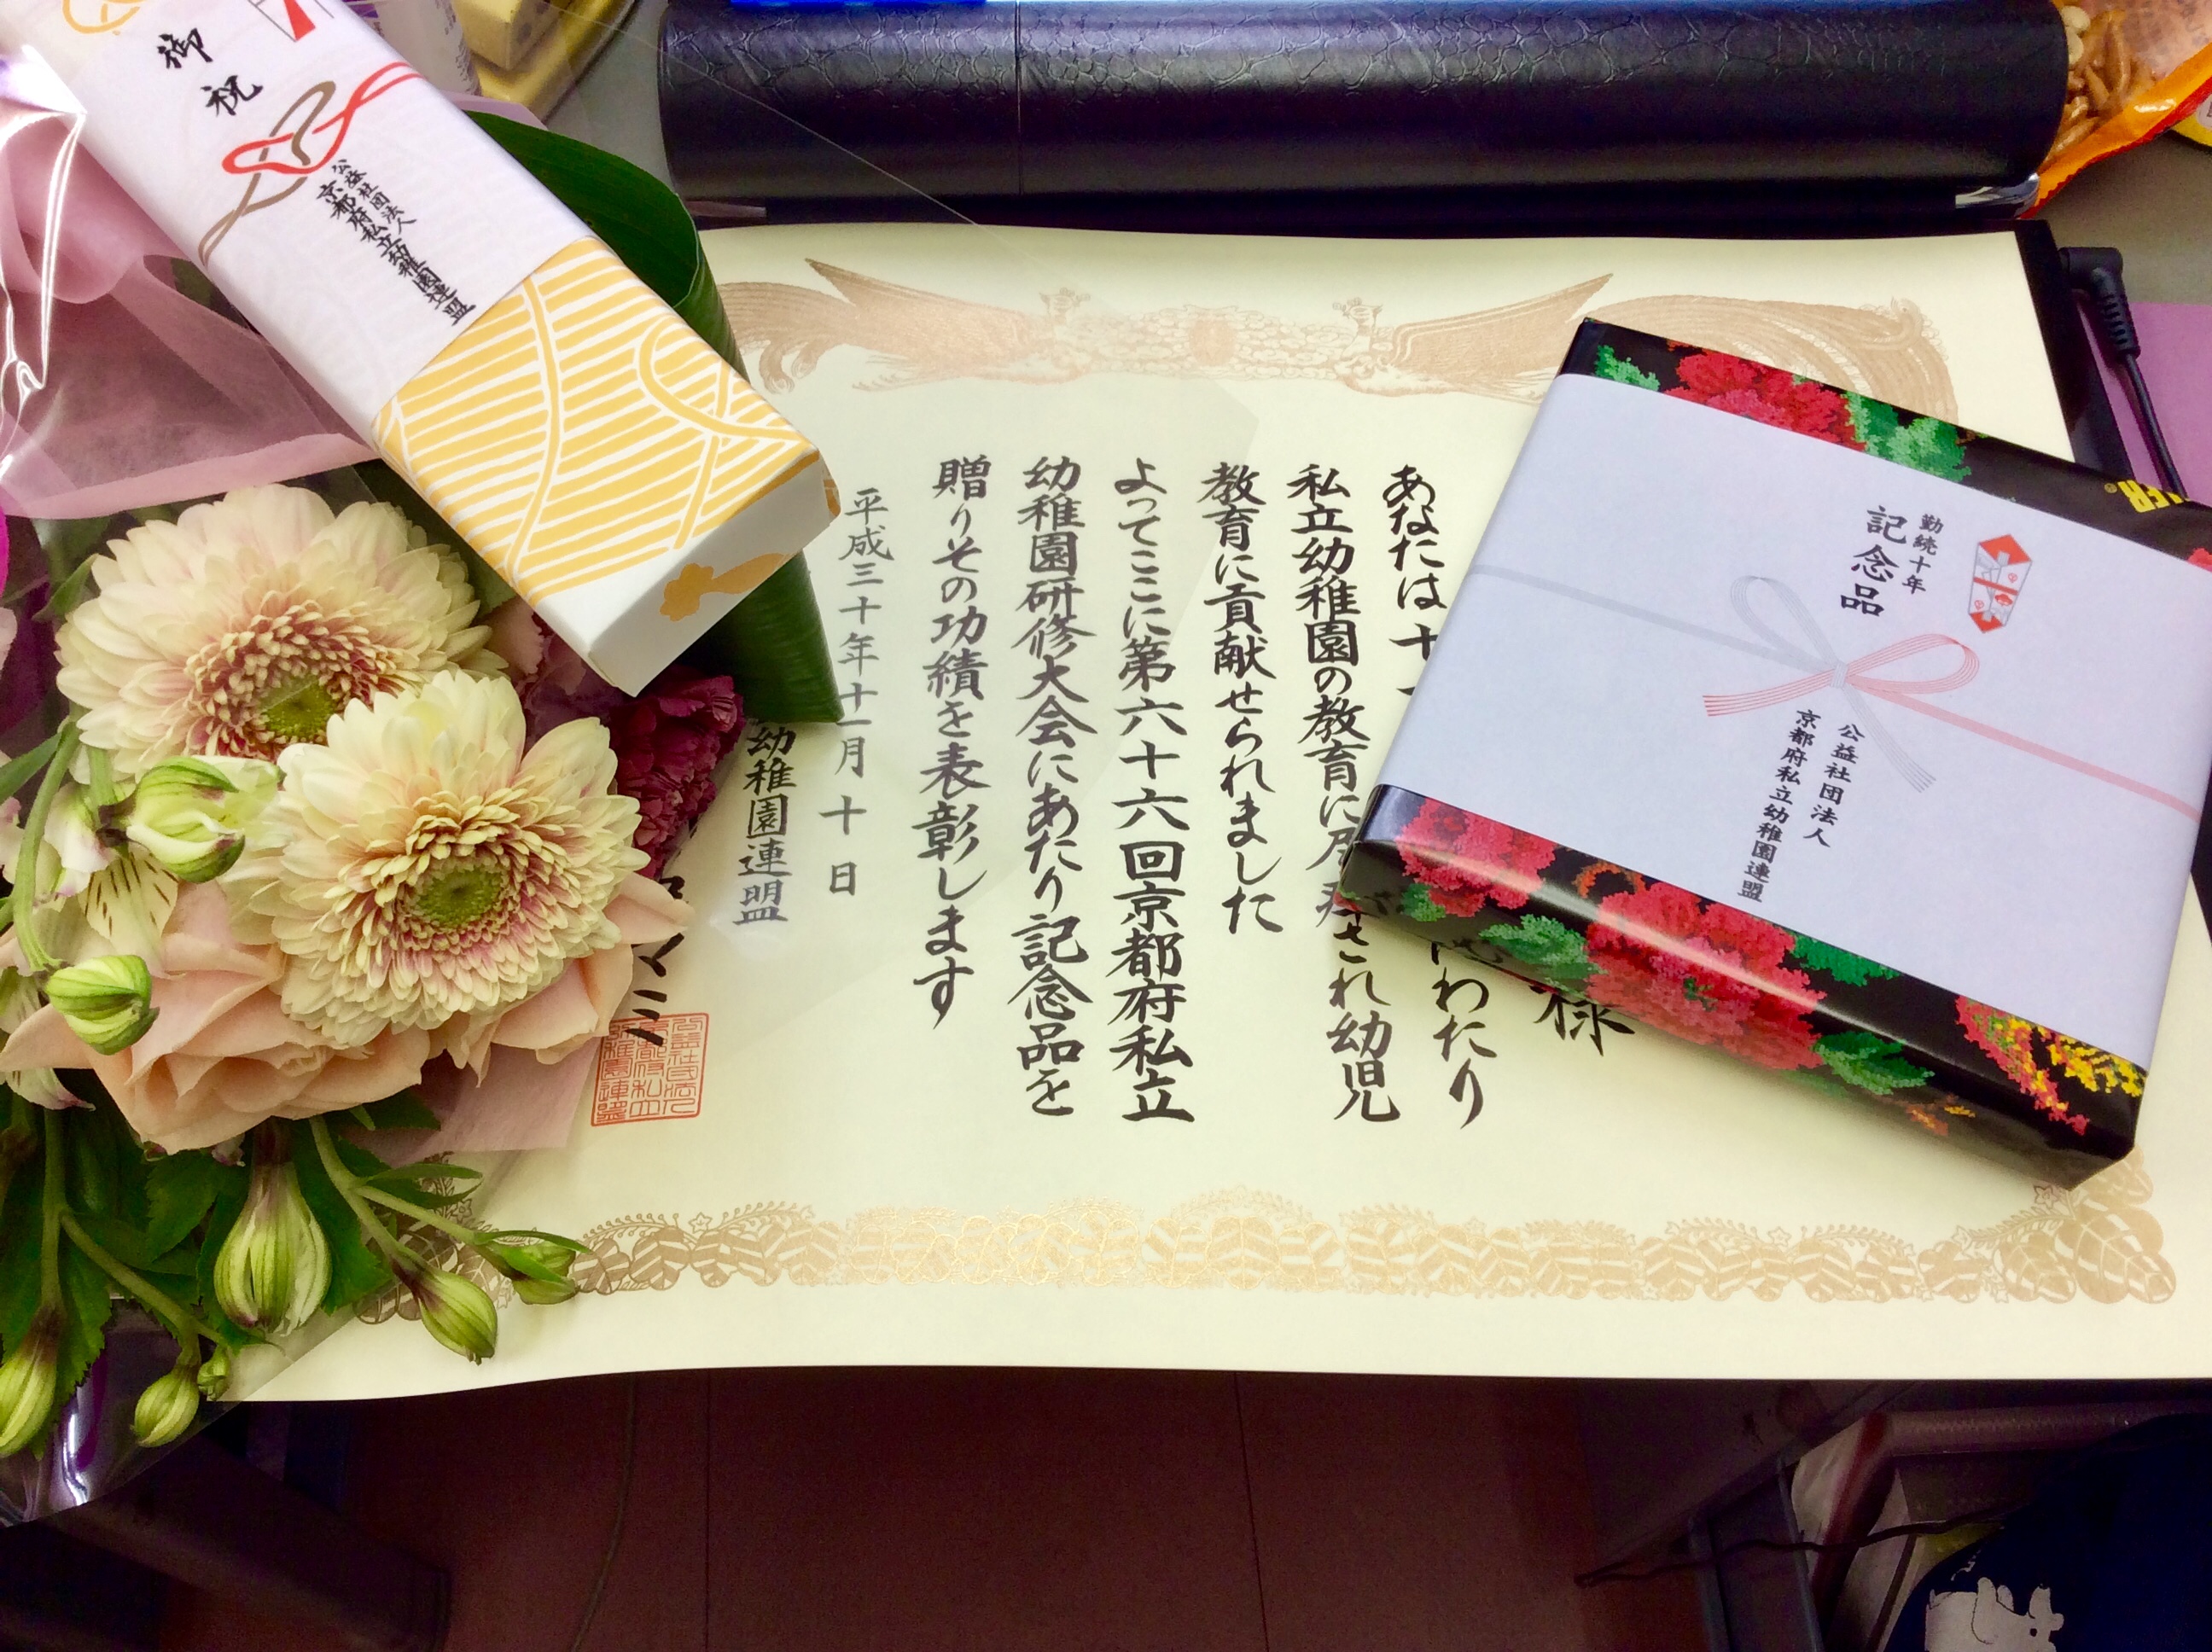 御祝
公益社団法人
京都府私立幼稚園連盟
勤続十年
記念品
公益社団法人
京都府私立幼稚園連盟
様
あなたは十 わたり
私立幼稚園の教育に され幼児
教育に貢献せられました
よってここに第六十六回京都府私立
幼稚園研修大会にあたり記念品を
贈りその功績を表彰します
平成三十年十一月十日
幼稚園連盟
マミ